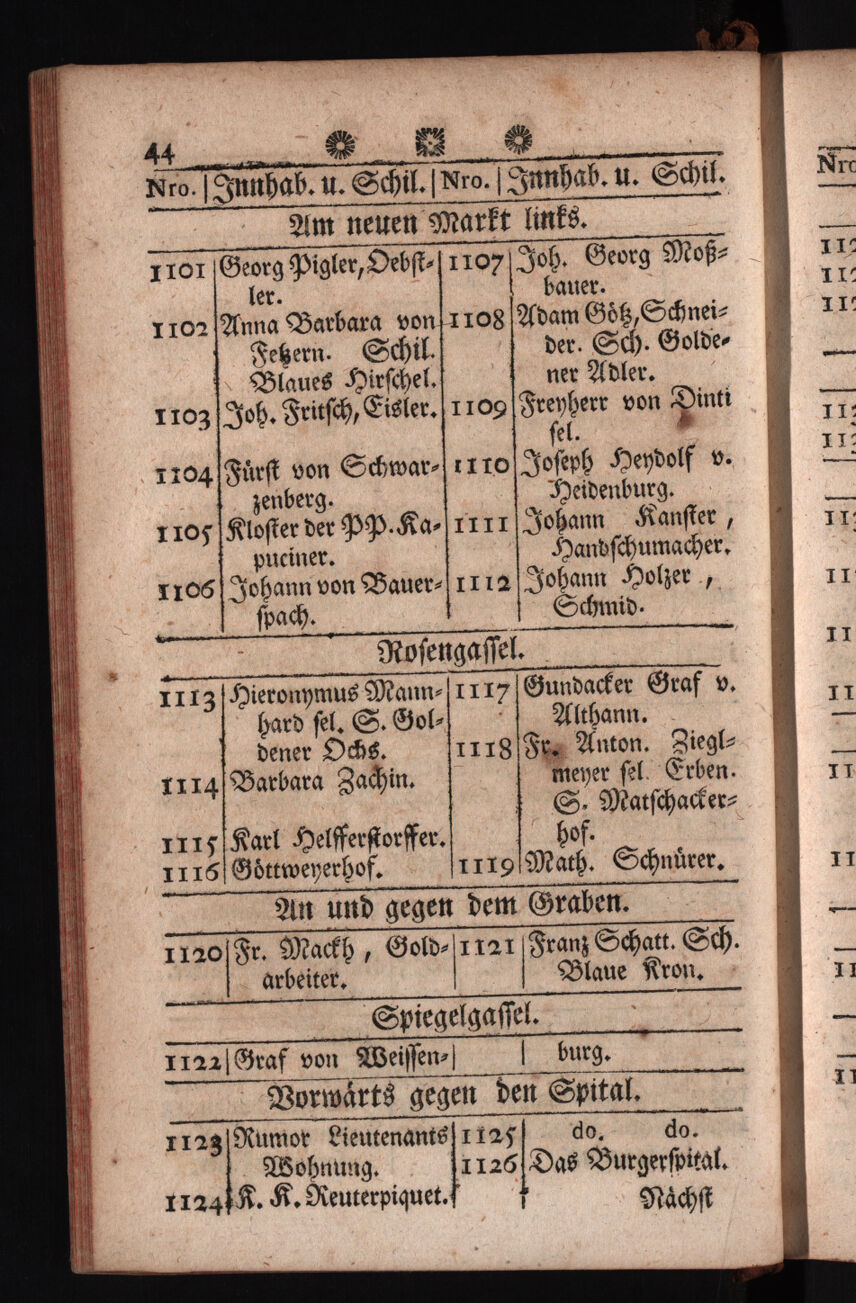 44
Nro. | Innhab. u. Schil. | Nro. | Innhab. u. Schil.
Am neuen Markt links.
1101 Georg Pigler, Oebst-
ler.
1102 Anna Barbara von
Fetzern. Schil.
Blaues Hirschel.
1103 Joh. Fritsch, Eisler.
1104 Fürst von Schwar-
zenberg.
1105 Kloster der PP. Ka-
puciner.
1106 Johann von Bauer-
spach.
1107 Joh. Georg Moß-
bauer.
1108 Adam Götz, Schnei-
der. Sch. Golde-
ner Adler.
1109 Freyherr von Dinti
sel.
1110 Joseph Heydolf v.
Heidenburg.
1111 Johann Kanster,
Handschumacher.
1112 Johann Holzer,
Schmid.
Rosengassel.
1113 Hieronymus Mann-
hard sel. S. Gol-
dener Ochs.
1114 Barbara Zachin.
1115 Karl Helfferstorffer.
1116 Göttweyerhof.
1117 Gundacker Graf v.
Althann.
1118 Fr. Anton. Ziegl-
meyer sel. Erben.
S. Matschacker-
hof.
1119 Math. Schnürer.
An und gegen dem Graben.
1120 Fr. Mackh, Gold-
arbeiter.
1121 Franz Schatt. Sch.
Blaue Kron.
Spiegelgassel.
1122 Graf von Weissen- | burg.
Vorwärts gegen den Spital.
1123 Rumor Lieutenants
Wohnung.
1124 K. K. Reuterpiquet.
1125 do. do.
1126 Das Burgerspital.
Nächst